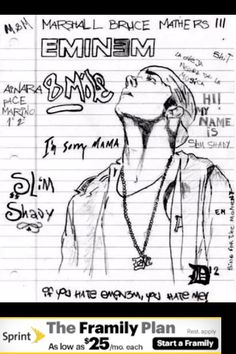 M&M
MARSHALL BRUCE MATHERS III
EMINEM
SLUT
LA OVEJA
NEGRA DE LA
MUSICA
8 Mile
AINARA
PACE
MARTINO
1º 2ª
HI!
MY
NAME
IS
SLIM SHADY
I'm sorry MAMA
SLIM
SHADY
EM
D12
SING FOR THE MOMENT
IF YOU HATE EMINEM, YOU HATE ME!
Sprint
The Framily Plan
As low as $25/mo. each
Rest. apply
Start a Framily